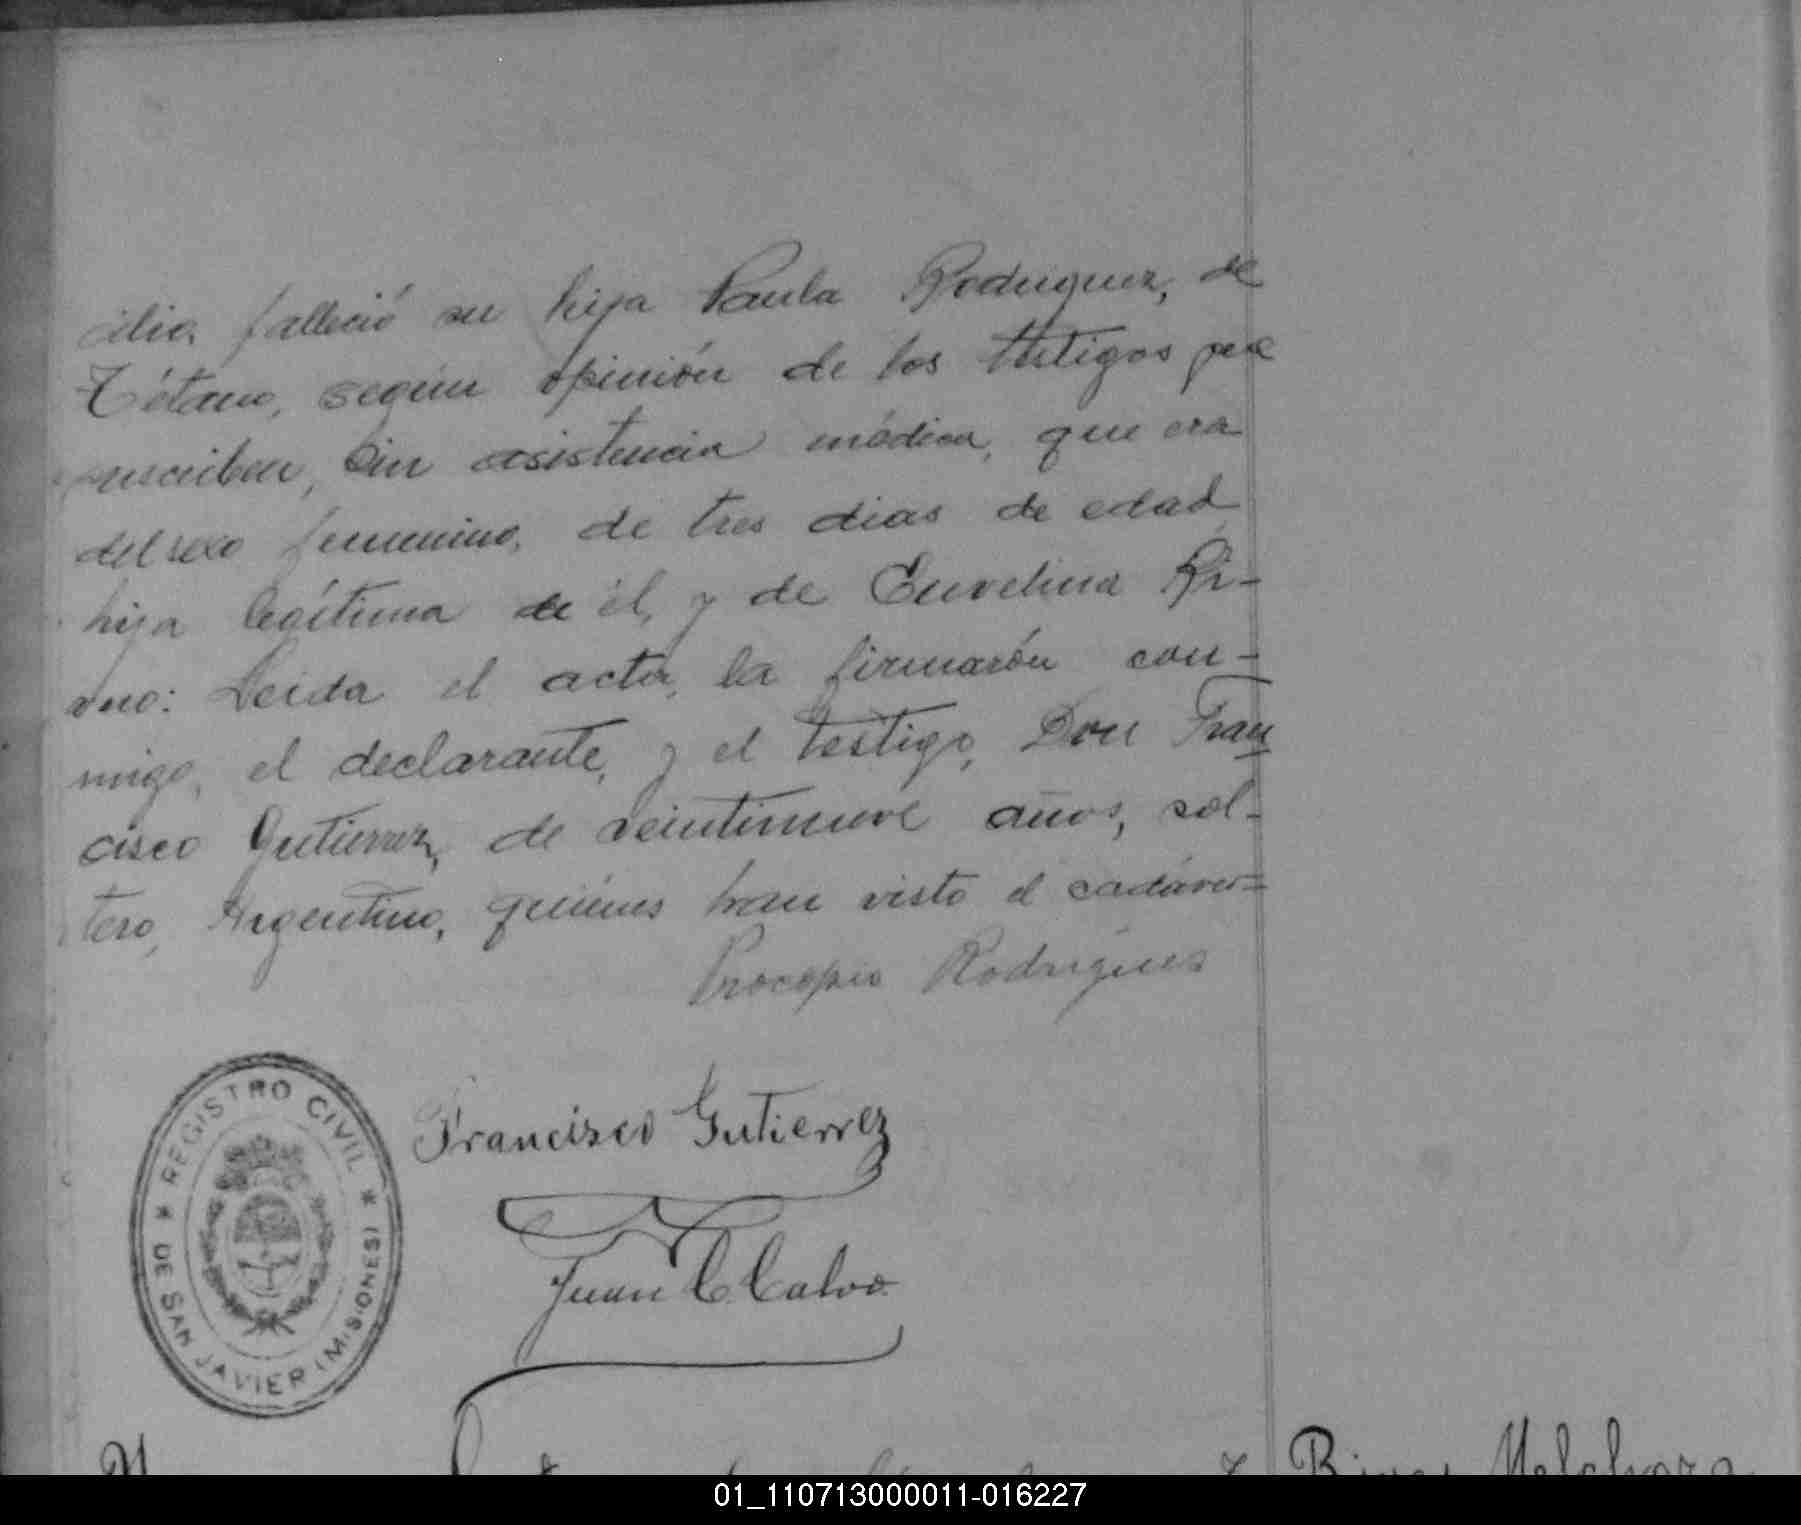 cilio, falleció su hija Paula Rodriguez, de
Tétano, según opinión de los testigos que
suscriben, sin asistencia médica, que era
del sexo femenino, de tres dias de edad
hija legítima de él, y de Euvelina Ri-
vno: Leida el acta, la firmarón con-
migo, el declarante, y el testigo, Don Fran
cisco Gutierrez, de veintinueve años, sol-
tero, Argentino, quiénes han visto el cadáver=
Procopio Rodrigues
Francisco Gutierrez
Juan C. Calvo
* REGISTRO CIVIL *
DE SAN JAVIER (MISIONES)
Melchora
01_110713000011-016227